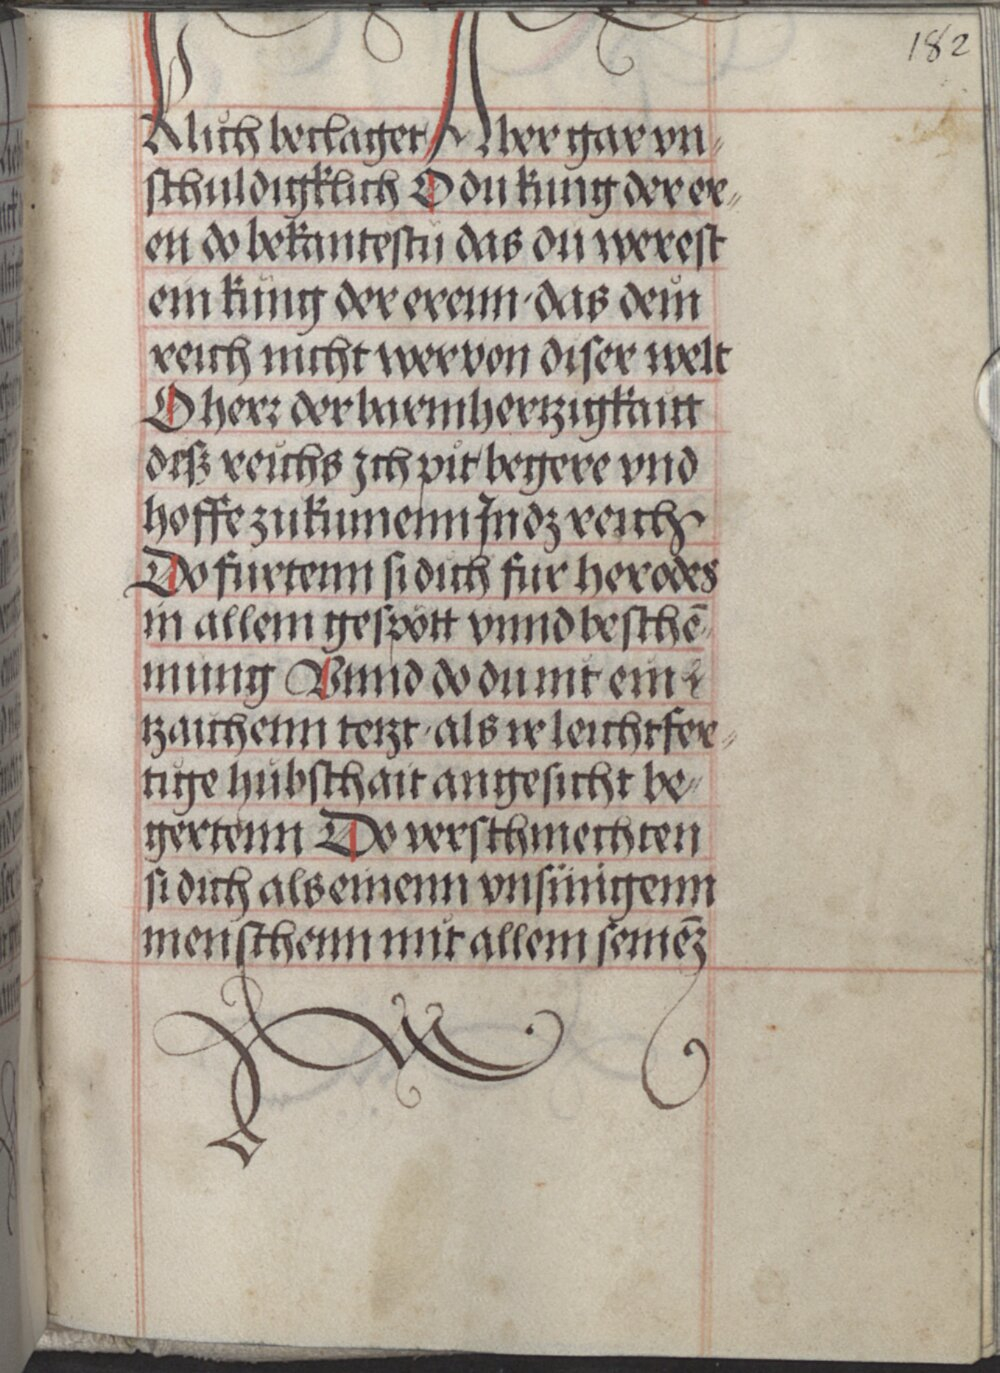 182
klich beclaget Aber gar vn-
schuldigklich O du kung der er-
en do bekantestu das du werest
ein kung der erenn das dein
reich nicht wer von diser welt
O herz der barmhertzigkaitt
diß reichs Ich pit begere vnd
hoffe zukumenn In dz reich
Do furtenn si dich fur herodes
in allem gespött vnnd beschē
mung Vnnd do du nit ein
tzaichenn tetzt als ir leichtfer-
tige hübschait angesicht be-
gertenn Do verschmechten
si dich als einenn vnsinigenn
menschenn mit allem seinēz